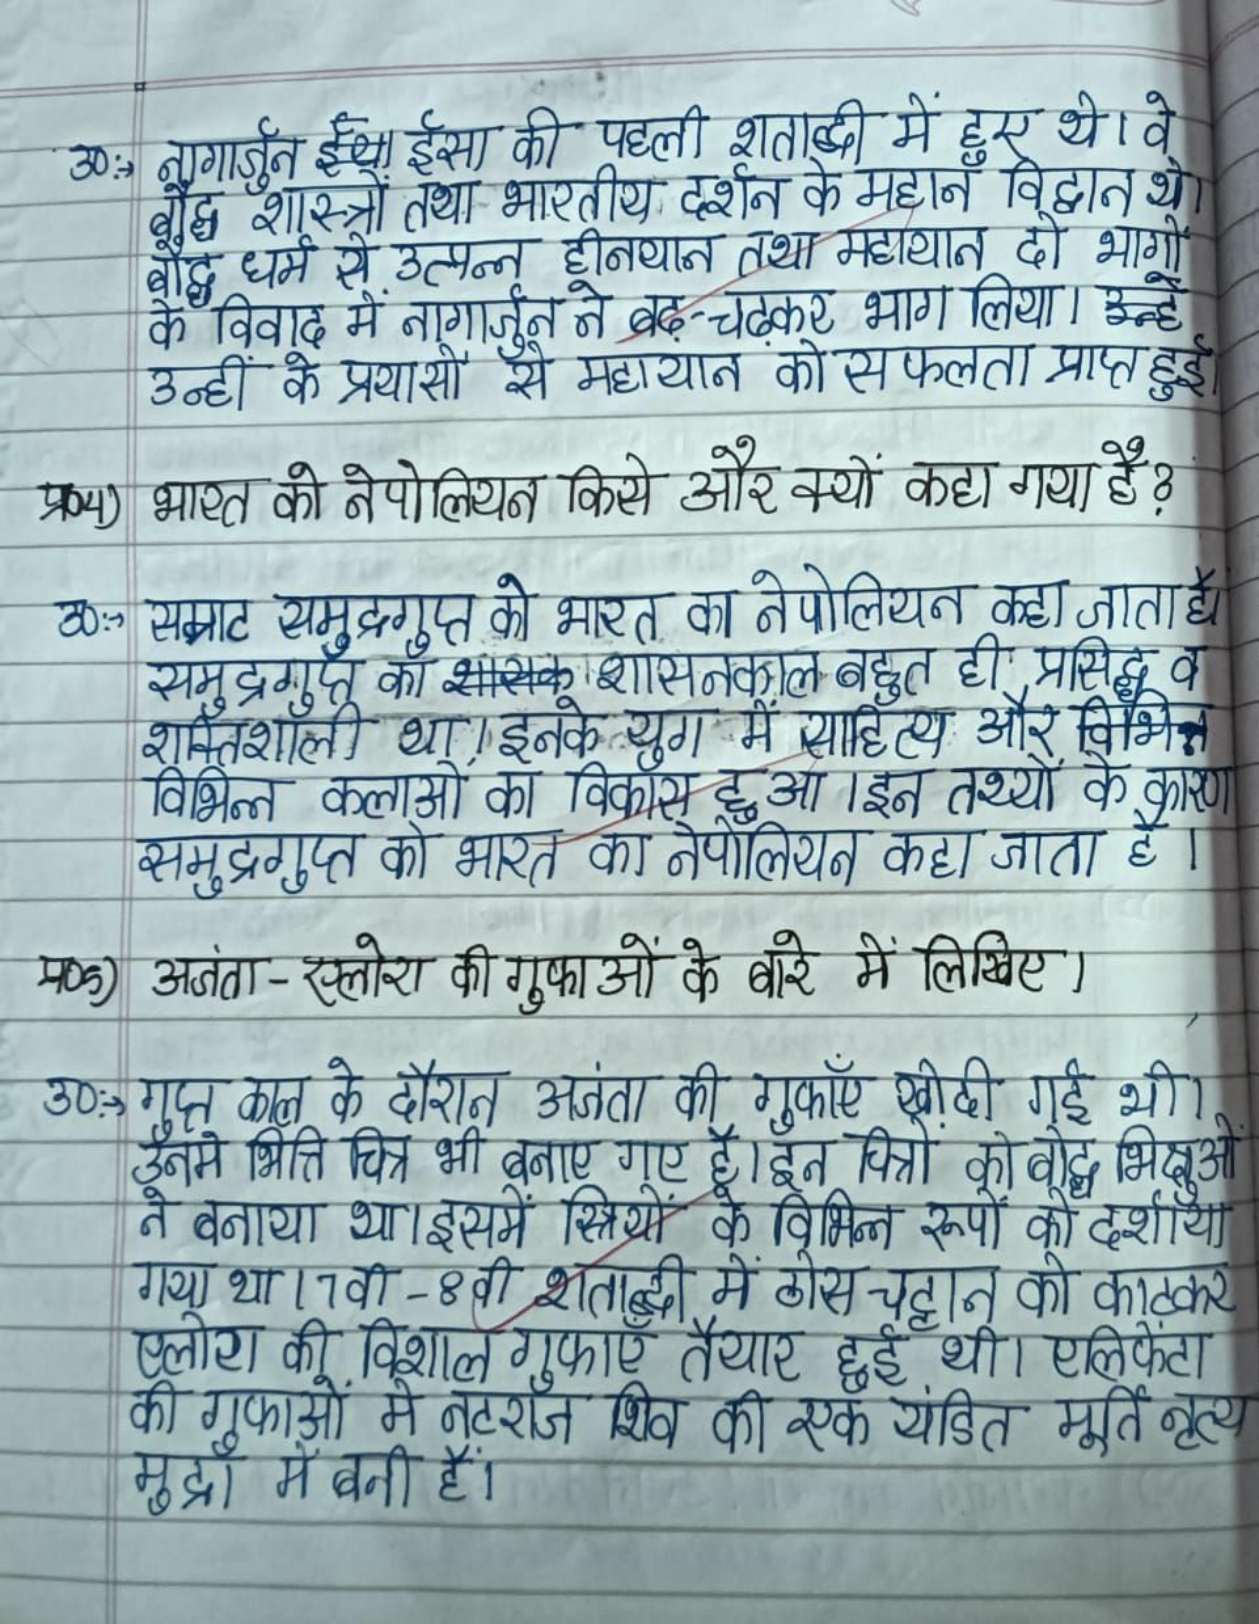 उ०:→ नागार्जुन ईसा की पहली शताब्दी में हुए थे। वे
बौद्ध शास्त्रों तथा भारतीय दर्शन के महान विद्वान थे।
बौद्ध धर्म से उत्पन्न हीनयान तथा महायान दो भागों
के विवाद में नागार्जुन ने बढ़-चढ़कर भाग लिया। उन्हें
उन्हीं के प्रयासों से महायान को सफलता प्राप्त हुई।
प्र०५) भारत को नेपोलियन किसे और क्यों कहा गया है?
उ०:→ सम्राट समुद्रगुप्त को भारत का नेपोलियन कहा जाता है।
समुद्रगुप्त का शासक शासनकाल बहुत ही प्रसिद्ध व
शक्तिशाली था। इनके युग में साहित्य और विभिन
विभिन्न कलाओं का विकास हुआ। इन तथ्यों के कारण
समुद्रगुप्त को भारत का नेपोलियन कहा जाता है।
प्र०६) अजंता - एलोरा की गुफाओं के बारे में लिखिए।
उ०:→ गुप्त काल के दौरान अजंता की गुफाएँ खोदी गई थी।
उनमे भित्ति चित्र भी बनाए गए है। इन चित्रों को बौद्ध भिक्षुओं
ने बनाया था। इसमें स्त्रियों के विभिन्न रूपों को दर्शाया
गया था। 7वी - 8वी शताब्दी में ठोस चट्टान को काटकर
एलोरा की विशाल गुफाएँ तैयार हुई थी। एलिफेंटा
की गुफाओं में नटराज शिव की एक खंडित मूर्ति नृत्य
मुद्रा में बनी हैं।